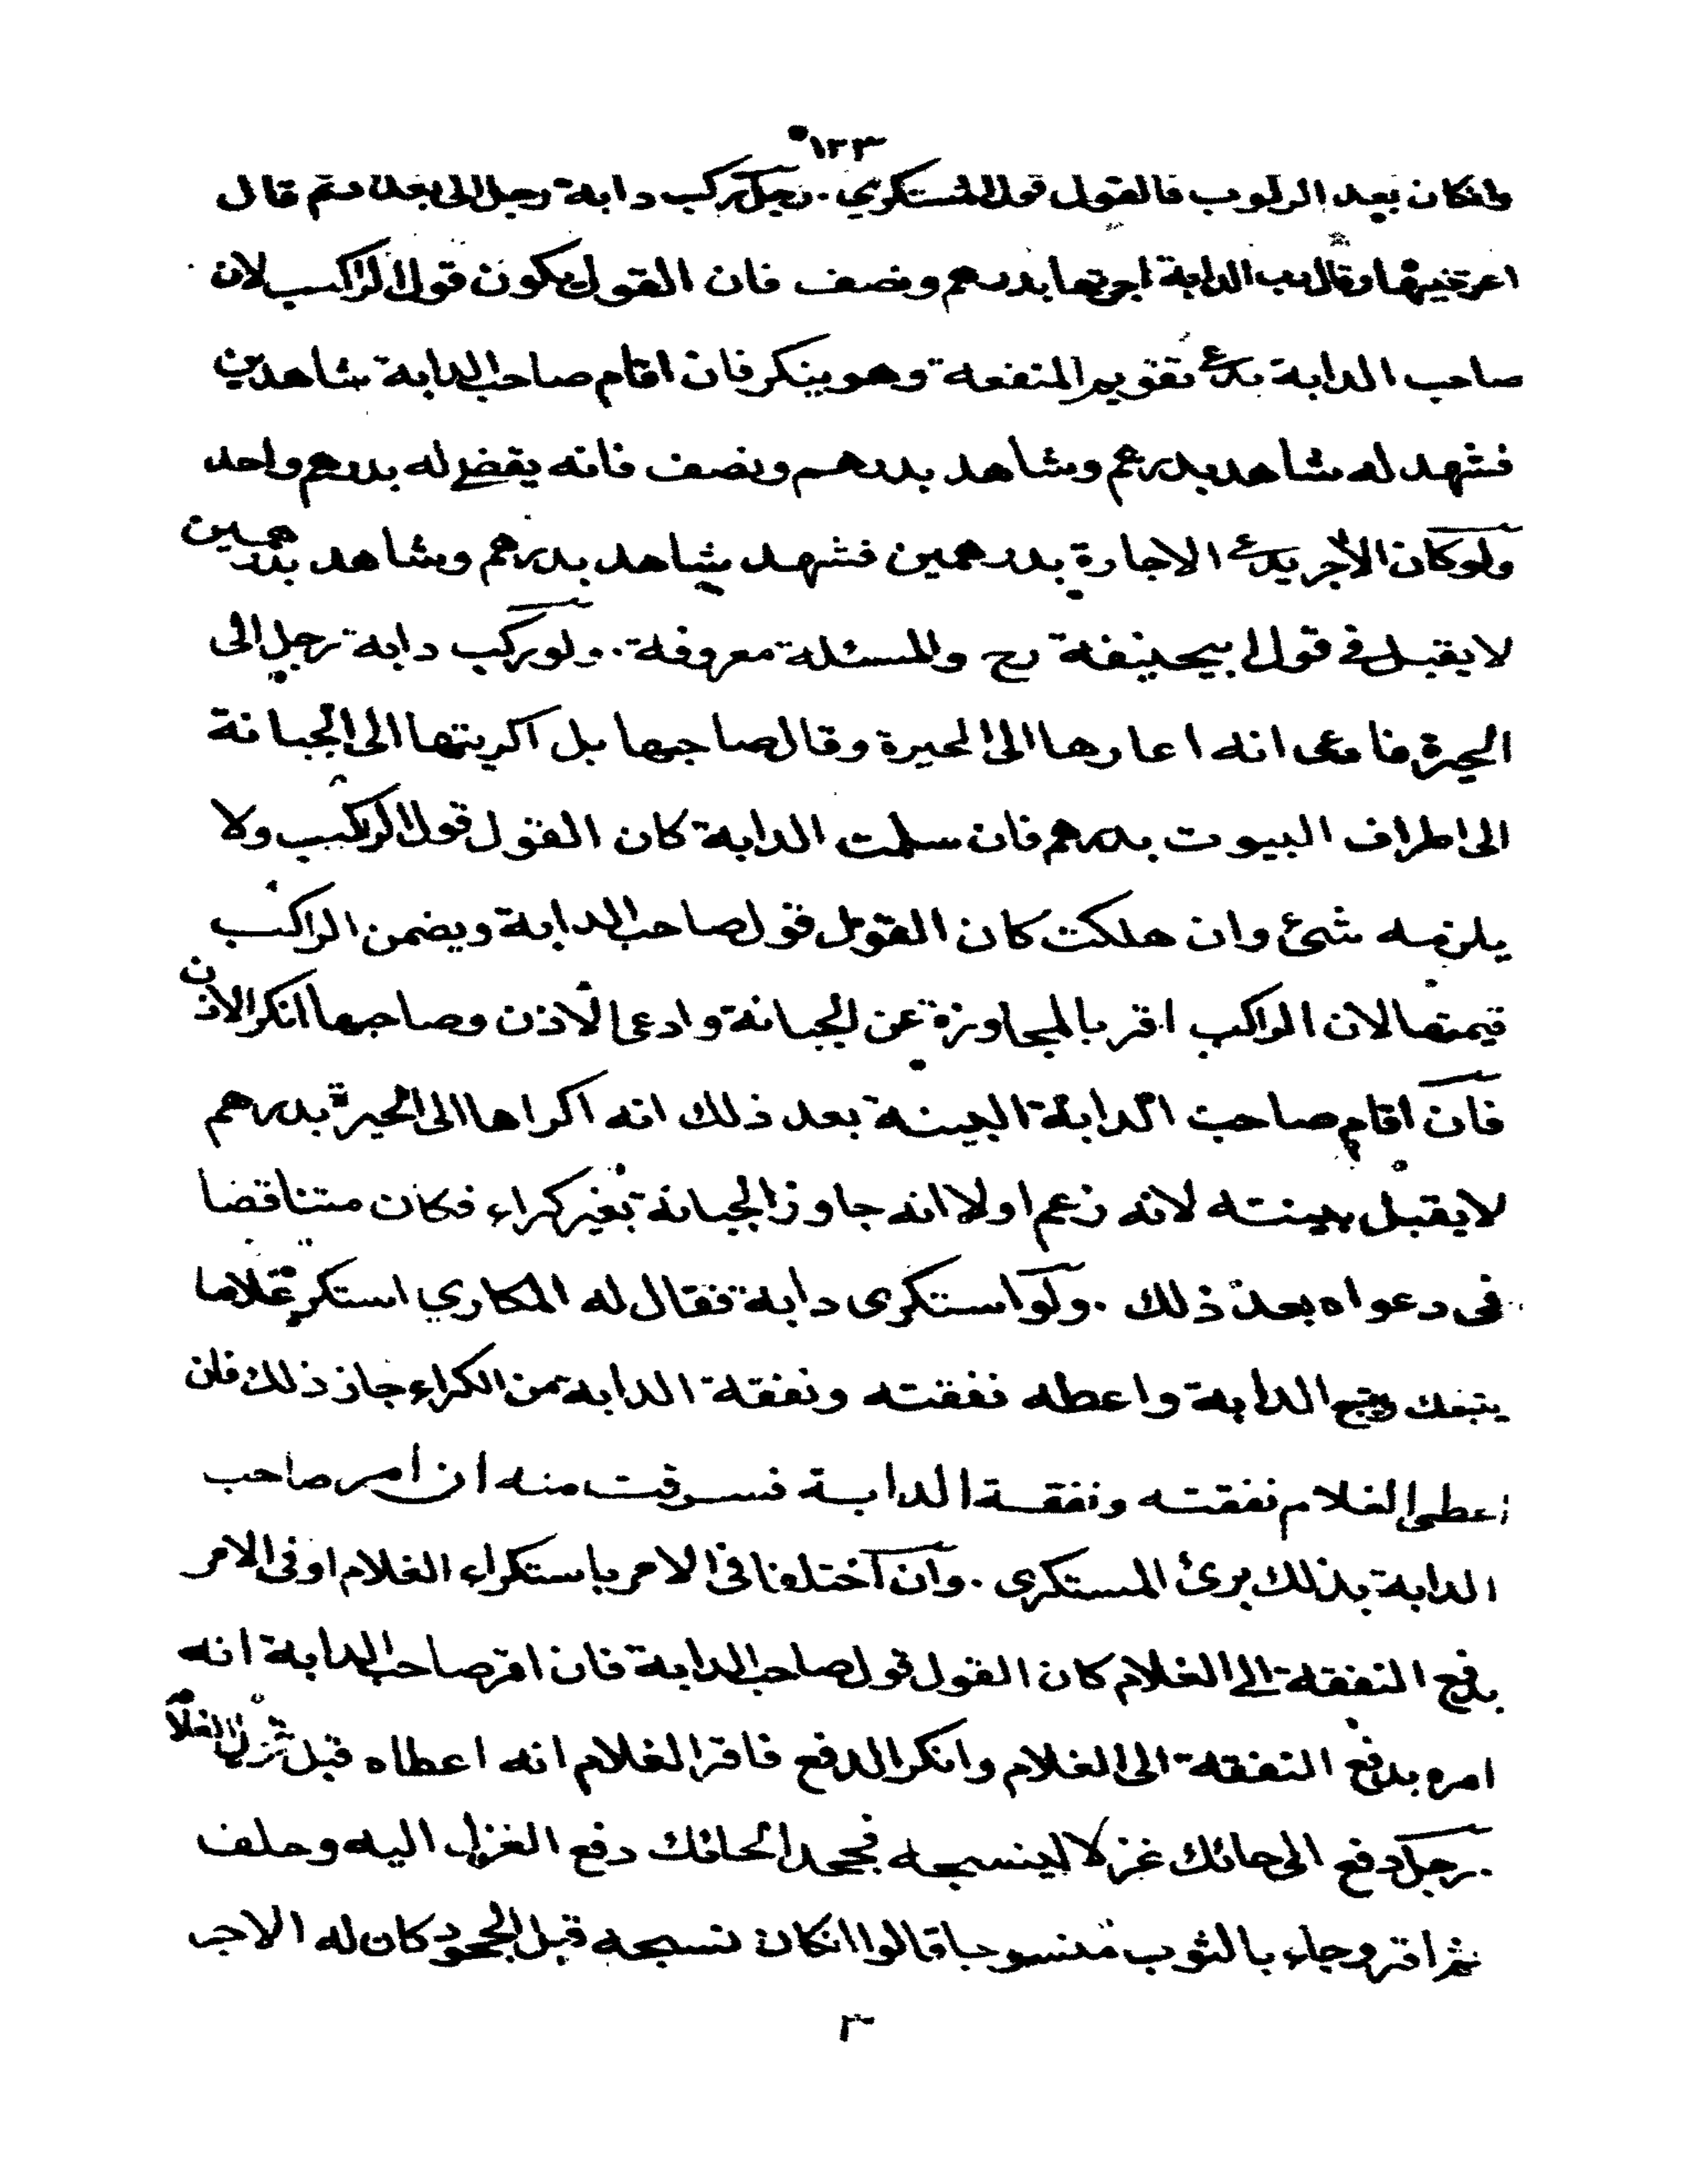 ١٢٣
وانكان بعد الركوب فالقول قول المستكري . رجل ركب دابة رجل الى بغداد ثم قال
اعرتنيها وقال رب الدابة اجرتها بدرهم ونصف فان القول يكون قول الراكب لان
صاحب الدابة يدعي تقويم المنفعة وهو ينكر فان اقام صاحب الدابة شاهدين
فشهد له شاهد بدرهم وشاهد بدرهم ونصف فانه يقضى له بدرهم واحد
ولو كان الآجر يدعي الاجارة بدرهمين فشهد شاهد بدرهم وشاهد بدرهمين
لا يقبل في قول ابيحنيفة رح والمسئلة معروفة . ولو ركب دابة رجل الى
الحيرة فادعى انه اعارها الى الحيرة وقال صاحبها بل اكريتها الى الجبانة
الى اطراف البيوت بدرهم فان سلمت الدابة كان القول قول الراكب ولا
يلزمه شئ وان هلكت كان القول قول صاحب الدابة ويضمن الراكب
قيمتها لان الراكب اقر بالمجاوزة عن الجبانة وادعى الاذن وصاحبها انكر الاذن
فان اقام صاحب الدابة البينة بعد ذلك انه اكراها الى الحيرة بدرهم
لا يقبل بينته لانه زعم اولا انه جاوز الجبانة بغير كراء فكان متناقضا
فى دعواه بعد ذلك . ولو استكرى دابة فقال له المكاري استكر غلاما
يتبعك ويتبع الدابة واعطه نفقته ونفقة الدابة من الكراء جاز ذلك فان
اعطى الغلام نفقته ونفقة الدابة فسرقت منه ان امر صاحب
الدابة بذلك برئ المستكرى . وان اختلفا فى الامر باستكراء الغلام او فى الامر
بدفع النفقة الى الغلام كان القول قول صاحب الدابة فان اقر صاحب الدابة انه
امره بدفع النفقة الى الغلام وانكر الدفع فاقر الغلام انه اعطاه قبل قول الغلام
. رجل دفع الى حائك غزلا لينسجه فجحد الحائك دفع الغزل اليه وحلف
ثم اقر وجاء بالثوب منسوجا قالوا انكان نسجه قبل الجحود كان له الاجر